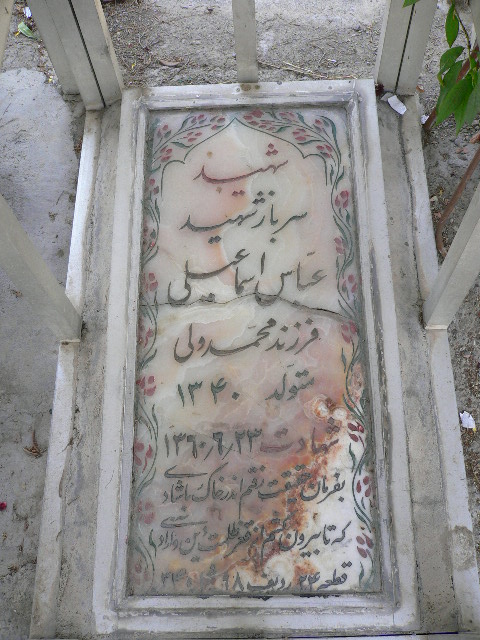 شهید
سرباز شهید
عباس اسماعیلی
فرزند محمدولی
متولد ۱۳۴۰
شهادت ۱۳۶۰/۶/۲۳
بفرمان حقیقت رفتم اندر خاک با شادی
که تا بیرون از قعر ظلمت این وادی
قطعه ۲۴ ردیف ۹۸